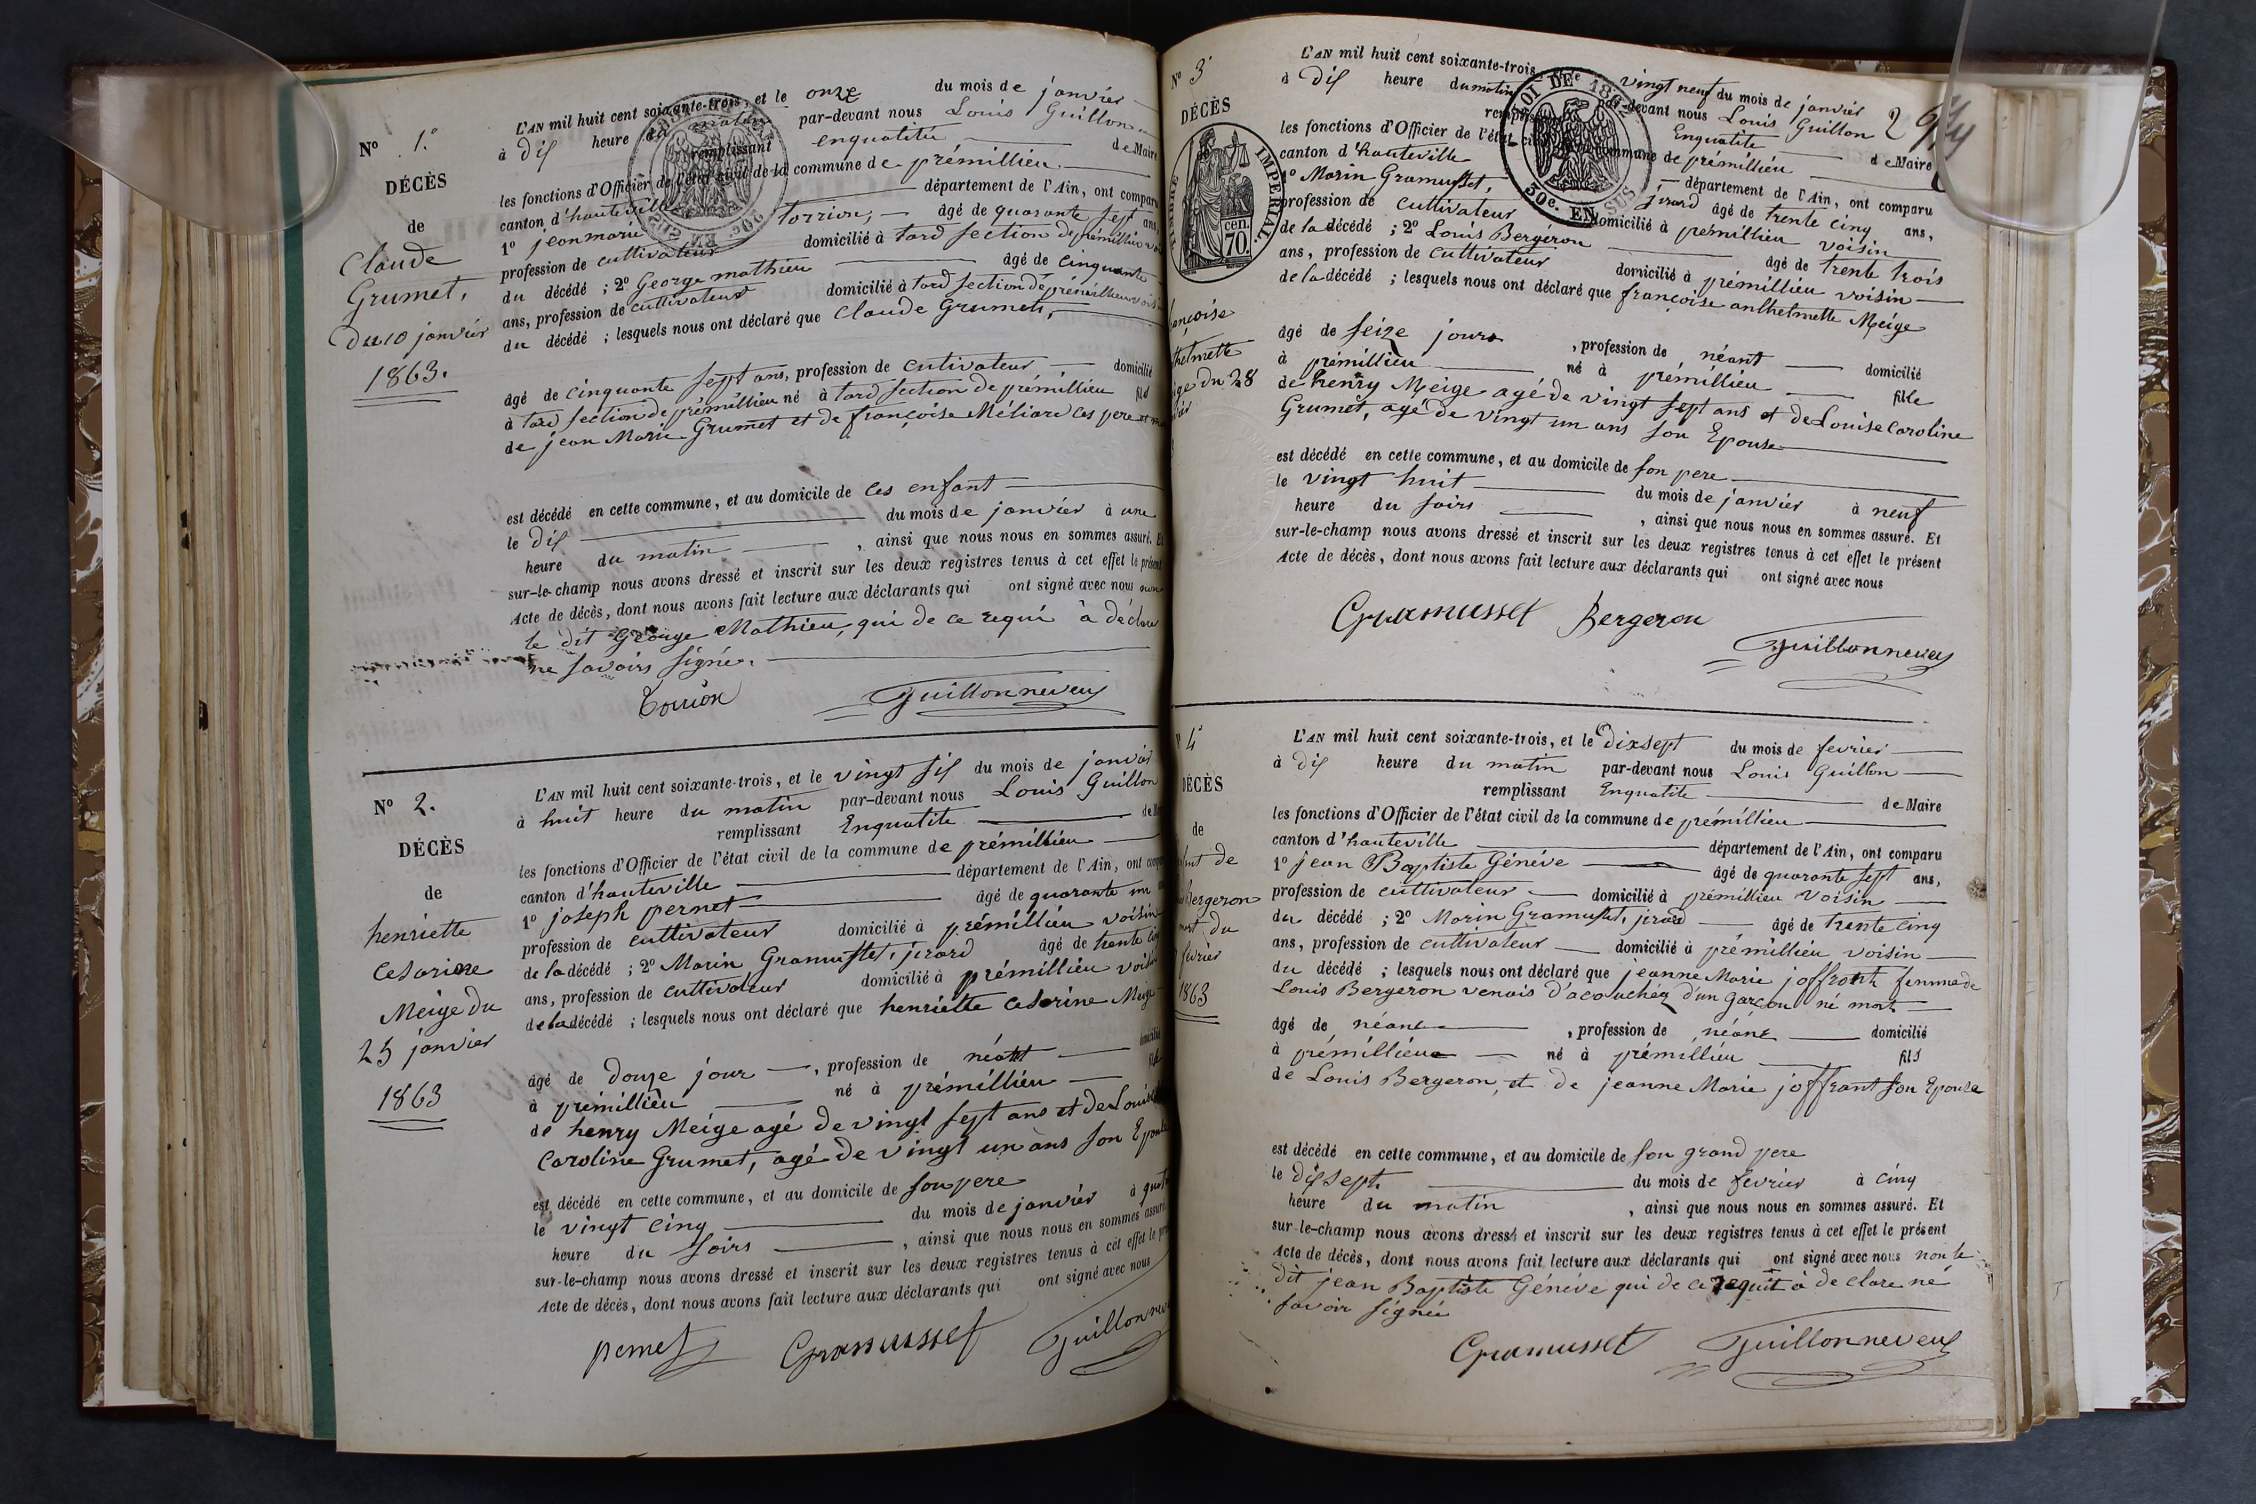 N° 1.°
DÉCÈS
de
Claude
Grumet,
Du 10 janvier
1863.
L'AN mil huit cent soixante-trois, et le onze du mois de janvier
à dix heure du matin par-devant nous Louis Guillon
remplissant enqualité de Maire
les fonctions d'Officier de l'état civil de la commune de prémillieu
canton d'hauteville département de l'Ain, ont comparu
1° jean marie torrion, âgé de quarante sept ans,
profession de cultivateur domicilié à tard section de prémillieu
du décédé ; 2° George mathieu âgé de cinquante
ans, profession de cultivateur domicilié à tard section de prémillieu
du décédé ; lesquels nous ont déclaré que Claude Grumet,
âgé de cinquante sept ans, profession de cutivateur domicilié
à tard section de prémillieu né à tard section de prémillieu fils
de jean Marie Grumet et de françoise Méliard ces pere et
est décédé en cette commune, et au domicile de ces enfant
le dix du mois de janvier à une
heure du matin, ainsi que nous nous en sommes assuré. Et
sur-le-champ nous avons dressé et inscrit sur les deux registres tenus à cet effet le présent
Acte de décès, dont nous avons fait lecture aux déclarants qui ont signé avec nous non
le dit George Mathieu, qui de ce requi à déclaré
ne savoirs signée.
Torrion Guillon neveu
N° 2.
DÉCÈS
de
henriette
Cesarine
Meige du
25 janvier
1863
L'AN mil huit cent soixante-trois, et le vingt six du mois de janvier
à huit heure du matin par-devant nous Louis Guillon
remplissant Enqualite de Maire
les fonctions d'Officier de l'état civil de la commune de prémillieu
canton d'hauteville département de l'Ain, ont comparu
1° joseph pernet âgé de quarante un
profession de cultivateur domicilié à prémillieu voisin
de la décédé ; 2° Marin Gramusset, jirard âgé de trente cinq
ans, profession de cultivateur domicilié à prémillieu voisin
de la décédé ; lesquels nous ont déclaré que henriette cesarine Meige
âgé de douze jour, profession de néant domicilié
à prémillieu né à prémillieu fille
de henry Meige agé de vingt sept ans et de Louise
Caroline Grumet, agé de vingt un ans son Epouse
est décédé en cette commune, et au domicile de son pere
le vingt cinq du mois de janvier à quatre
heure du soirs, ainsi que nous nous en sommes assuré.
sur-le-champ nous avons dressé et inscrit sur les deux registres tenus à cet effet le présent
Acte de décès, dont nous avons fait lecture aux déclarants qui ont signé avec nous
pernet Gramusset Guillon neveu
N° 3°
DÉCÈS
TIMBRE IMPERIAL.
70 cen.
ançoise
thelmette
ige du 28
L'AN mil huit cent soixante-trois, vingt neuf du mois de janvier
à dix heure du matin par-devant nous Louis Guillon
remplissant Enqualite de Maire
les fonctions d'Officier de l'état civil de la commune de prémillieu
canton d'hauteville département de l'Ain, ont comparu
1° Marin Gramusset, jirard âgé de trente cinq ans,
profession de cultivateur domicilié à prémillieu voisin
de la décédé ; 2° Louis Bergéron âgé de trente trois
ans, profession de cultivateur domicilié à prémillieu voisin
de la décédé ; lesquels nous ont déclaré que françoise anthelmette Meige
LOI DE 1862
30c. EN SUS
âgé de seize jours, profession de néant domicilié
à prémillieu né à prémillieu fille
de henry Meige agé de vingt sept ans et de Louise Caroline
Grumet, agé de vingt un ans son Epouse
est décédé en cette commune, et au domicile de son pere
le vingt huit du mois de janvier à neuf
heure du soirs, ainsi que nous nous en sommes assuré. Et
sur-le-champ nous avons dressé et inscrit sur les deux registres tenus à cet effet le présent
Acte de décès, dont nous avons fait lecture aux déclarants qui ont signé avec nous
Gramusset Bergeron
Guillon neveu
4°
DÉCÈS
de
de
Bergeron
mort du
février
1863
L'AN mil huit cent soixante-trois, et le Dixsept du mois de fevrier
à dix heure du matin par-devant nous Louis Guillon
remplissant Enqualite de Maire
les fonctions d'Officier de l'état civil de la commune de prémillieu
canton d'hauteville département de l'Ain, ont comparu
1° jean Baptiste Généve âgé de quarante sept ans,
profession de cultivateur domicilié à prémillieu voisin
du décédé ; 2° Marin Gramusset, jirard âgé de trente cinq
ans, profession de cultivateur domicilié à prémillieu voisin
du décédé ; lesquels nous ont déclaré que jeanne Marie joffrant femme de
Louis Bergeron venais d'acouchéz d'un garçon né mort
âgé de néant, profession de néant domicilié
à prémillieu né à prémillieu fils
de Louis Bergeron, et de jeanne Marie joffrant son Epouse
est décédé en cette commune, et au domicile de son grand pere
le dixsept du mois de fevrier à cinq
heure du matin, ainsi que nous nous en sommes assuré. Et
sur-le-champ nous avons dressé et inscrit sur les deux registres tenus à cet effet le présent
Acte de décès, dont nous avons fait lecture aux déclarants qui ont signé avec nous non le
dit jean Baptiste Génève qui de ce requit à de clare né
savoir signéi
Gramusset Guillon neveu